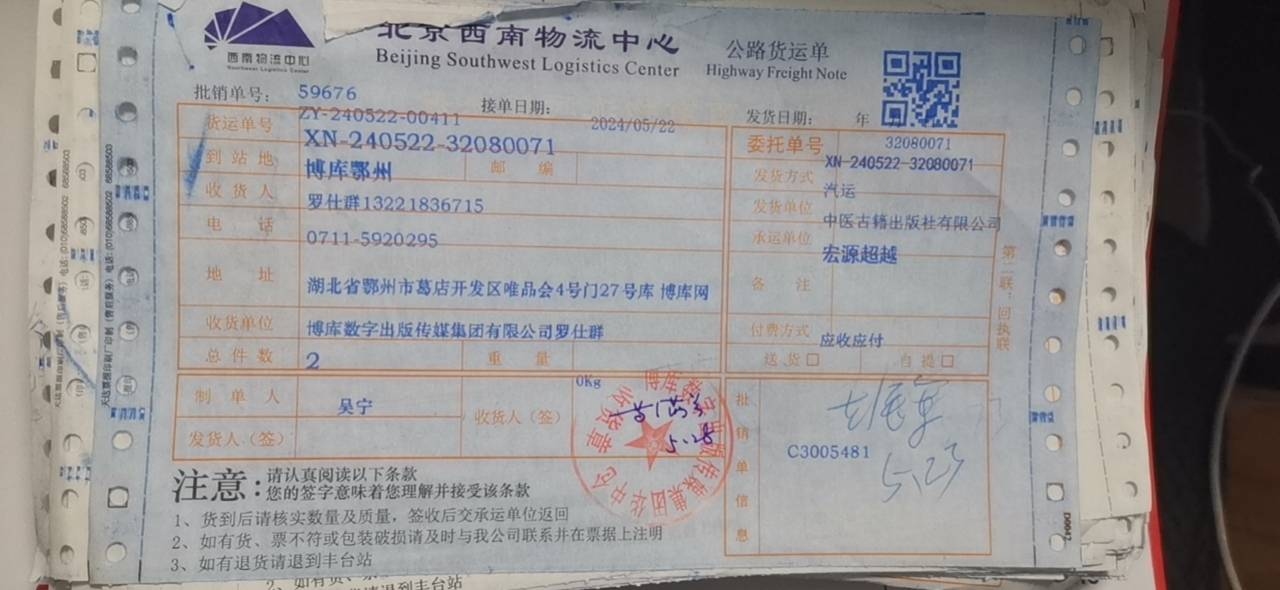 西南物流中心
Southwest Logistics Center
北京西南物流中心
Beijing Southwest Logistics Center
公路货运单
Highway Freight Note
批销单号: 59676
ZY-240522-00411
接单日期: 2024/05/22
发货日期: 年
货运单号 XN-240522-32080071
委托单号 32080071
XN-240522-32080071
到站地 博库鄂州 邮编
发货方式 汽运
收货人 罗仕群13221836715
发货单位 中医古籍出版社有限公司
电话 0711-5920295
承运单位 宏源超越
地址 湖北省鄂州市葛店开发区唯品会4号门27号库 博库网
备注
收货单位 博库数字出版传媒集团有限公司罗仕群
付费方式 应收应付
总件数 2 重量 0Kg
送货□ 自提□
制单人 吴宁
收货人(签)
5.28
发货人(签)
批销单信息
C3005481
5.23
第二联:回执联
注意:
请认真阅读以下条款
您的签字意味着您理解并接受该条款
1、货到后请核实数量及质量，签收后交承运单位返回
2、如有货、票不符或包装破损请及时与我公司联系并在票据上注明
3、如有退货请退到丰台站